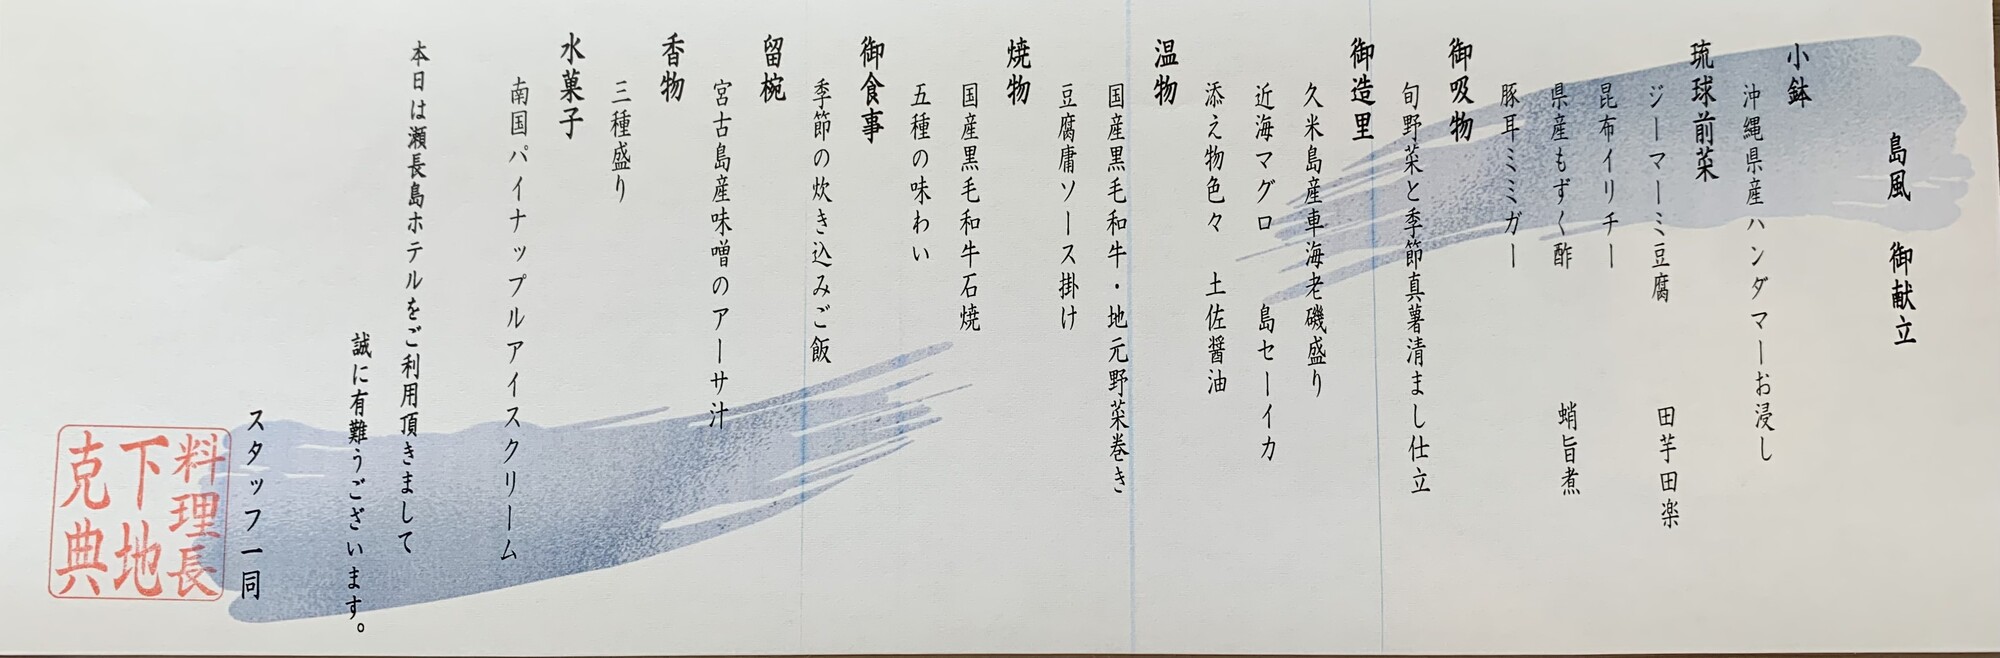 島風　御献立
小鉢
沖縄県産ハンダマーお浸し
琉球前菜
ジーマーミ豆腐　田芋田楽
昆布イリチー
県産もずく酢　蛸旨煮
豚耳ミミガー
御吸物
旬野菜と季節真薯清まし仕立
御造里
久米島産車海老磯盛り
近海マグロ　島セーイカ
添え物色々　土佐醤油
温物
国産黒毛和牛・地元野菜巻き
豆腐庸ソース掛け
焼物
国産黒毛和牛石焼
五種の味わい
御食事
季節の炊き込みご飯
留椀
宮古島産味噌のアーサ汁
香物
三種盛り
水菓子
南国パイナップルアイスクリーム
本日は瀬長島ホテルをご利用頂きまして
誠に有難うございます。
スタッフ一同
料理長
下地
克典